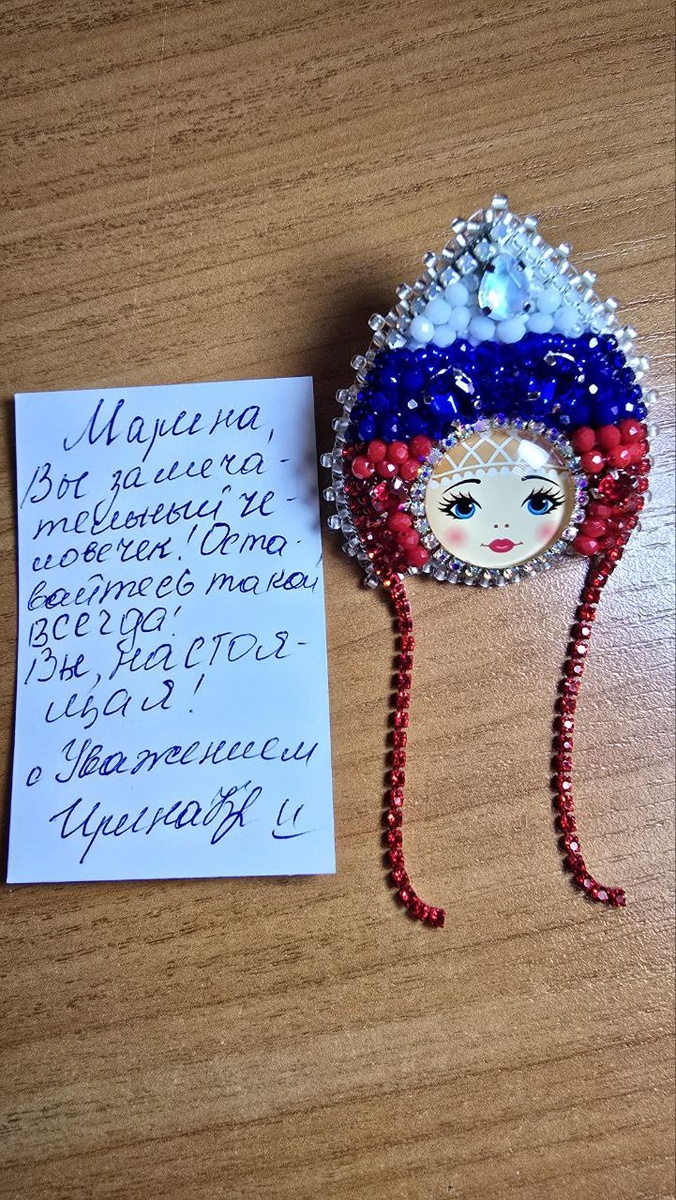 Марина,
Вы замеча-
тельный че-
ловечек! Оста-
вайтесь такой
ВСЕГДА!
Вы, НАСТОЯ-
щая!
с Уважением
Ирина